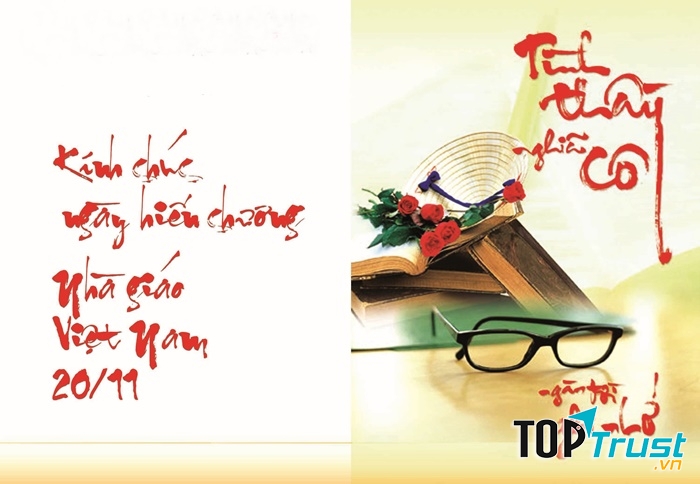 Kính chúc
ngày hiến chương
Nhà giáo
Việt Nam
20/11
Tình
thầy
nghĩa cô
ngàn đời
nhớ
TOPTrust
.vn